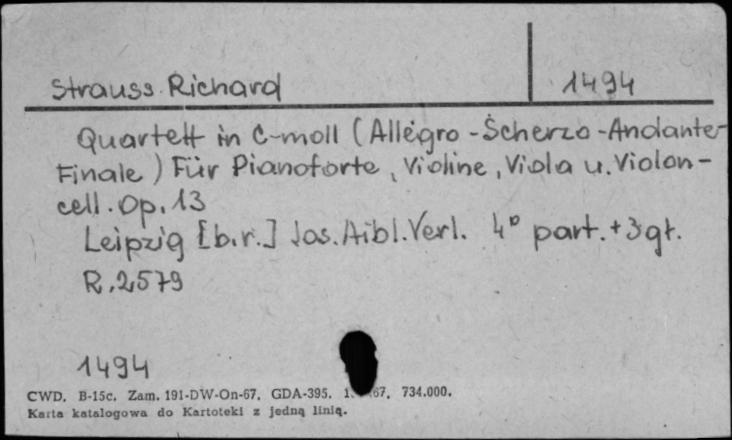 Strauss Richard 1494
Quartett in C-moll (Allegro - Scherzo - Andante -
Finale) Für Pianoforte, Violine, Viola u. Violon-
cell. Op. 13
Leipzig [b.r.] Jos. Aibl. Verl. 4° part. + 3 gł.
R. 2579
1494
CWD. B-15c. Zam. 191-DW-On-67. GDA-395. 67. 734.000.
Karta katalogowa do Kartoteki z jedną linią.